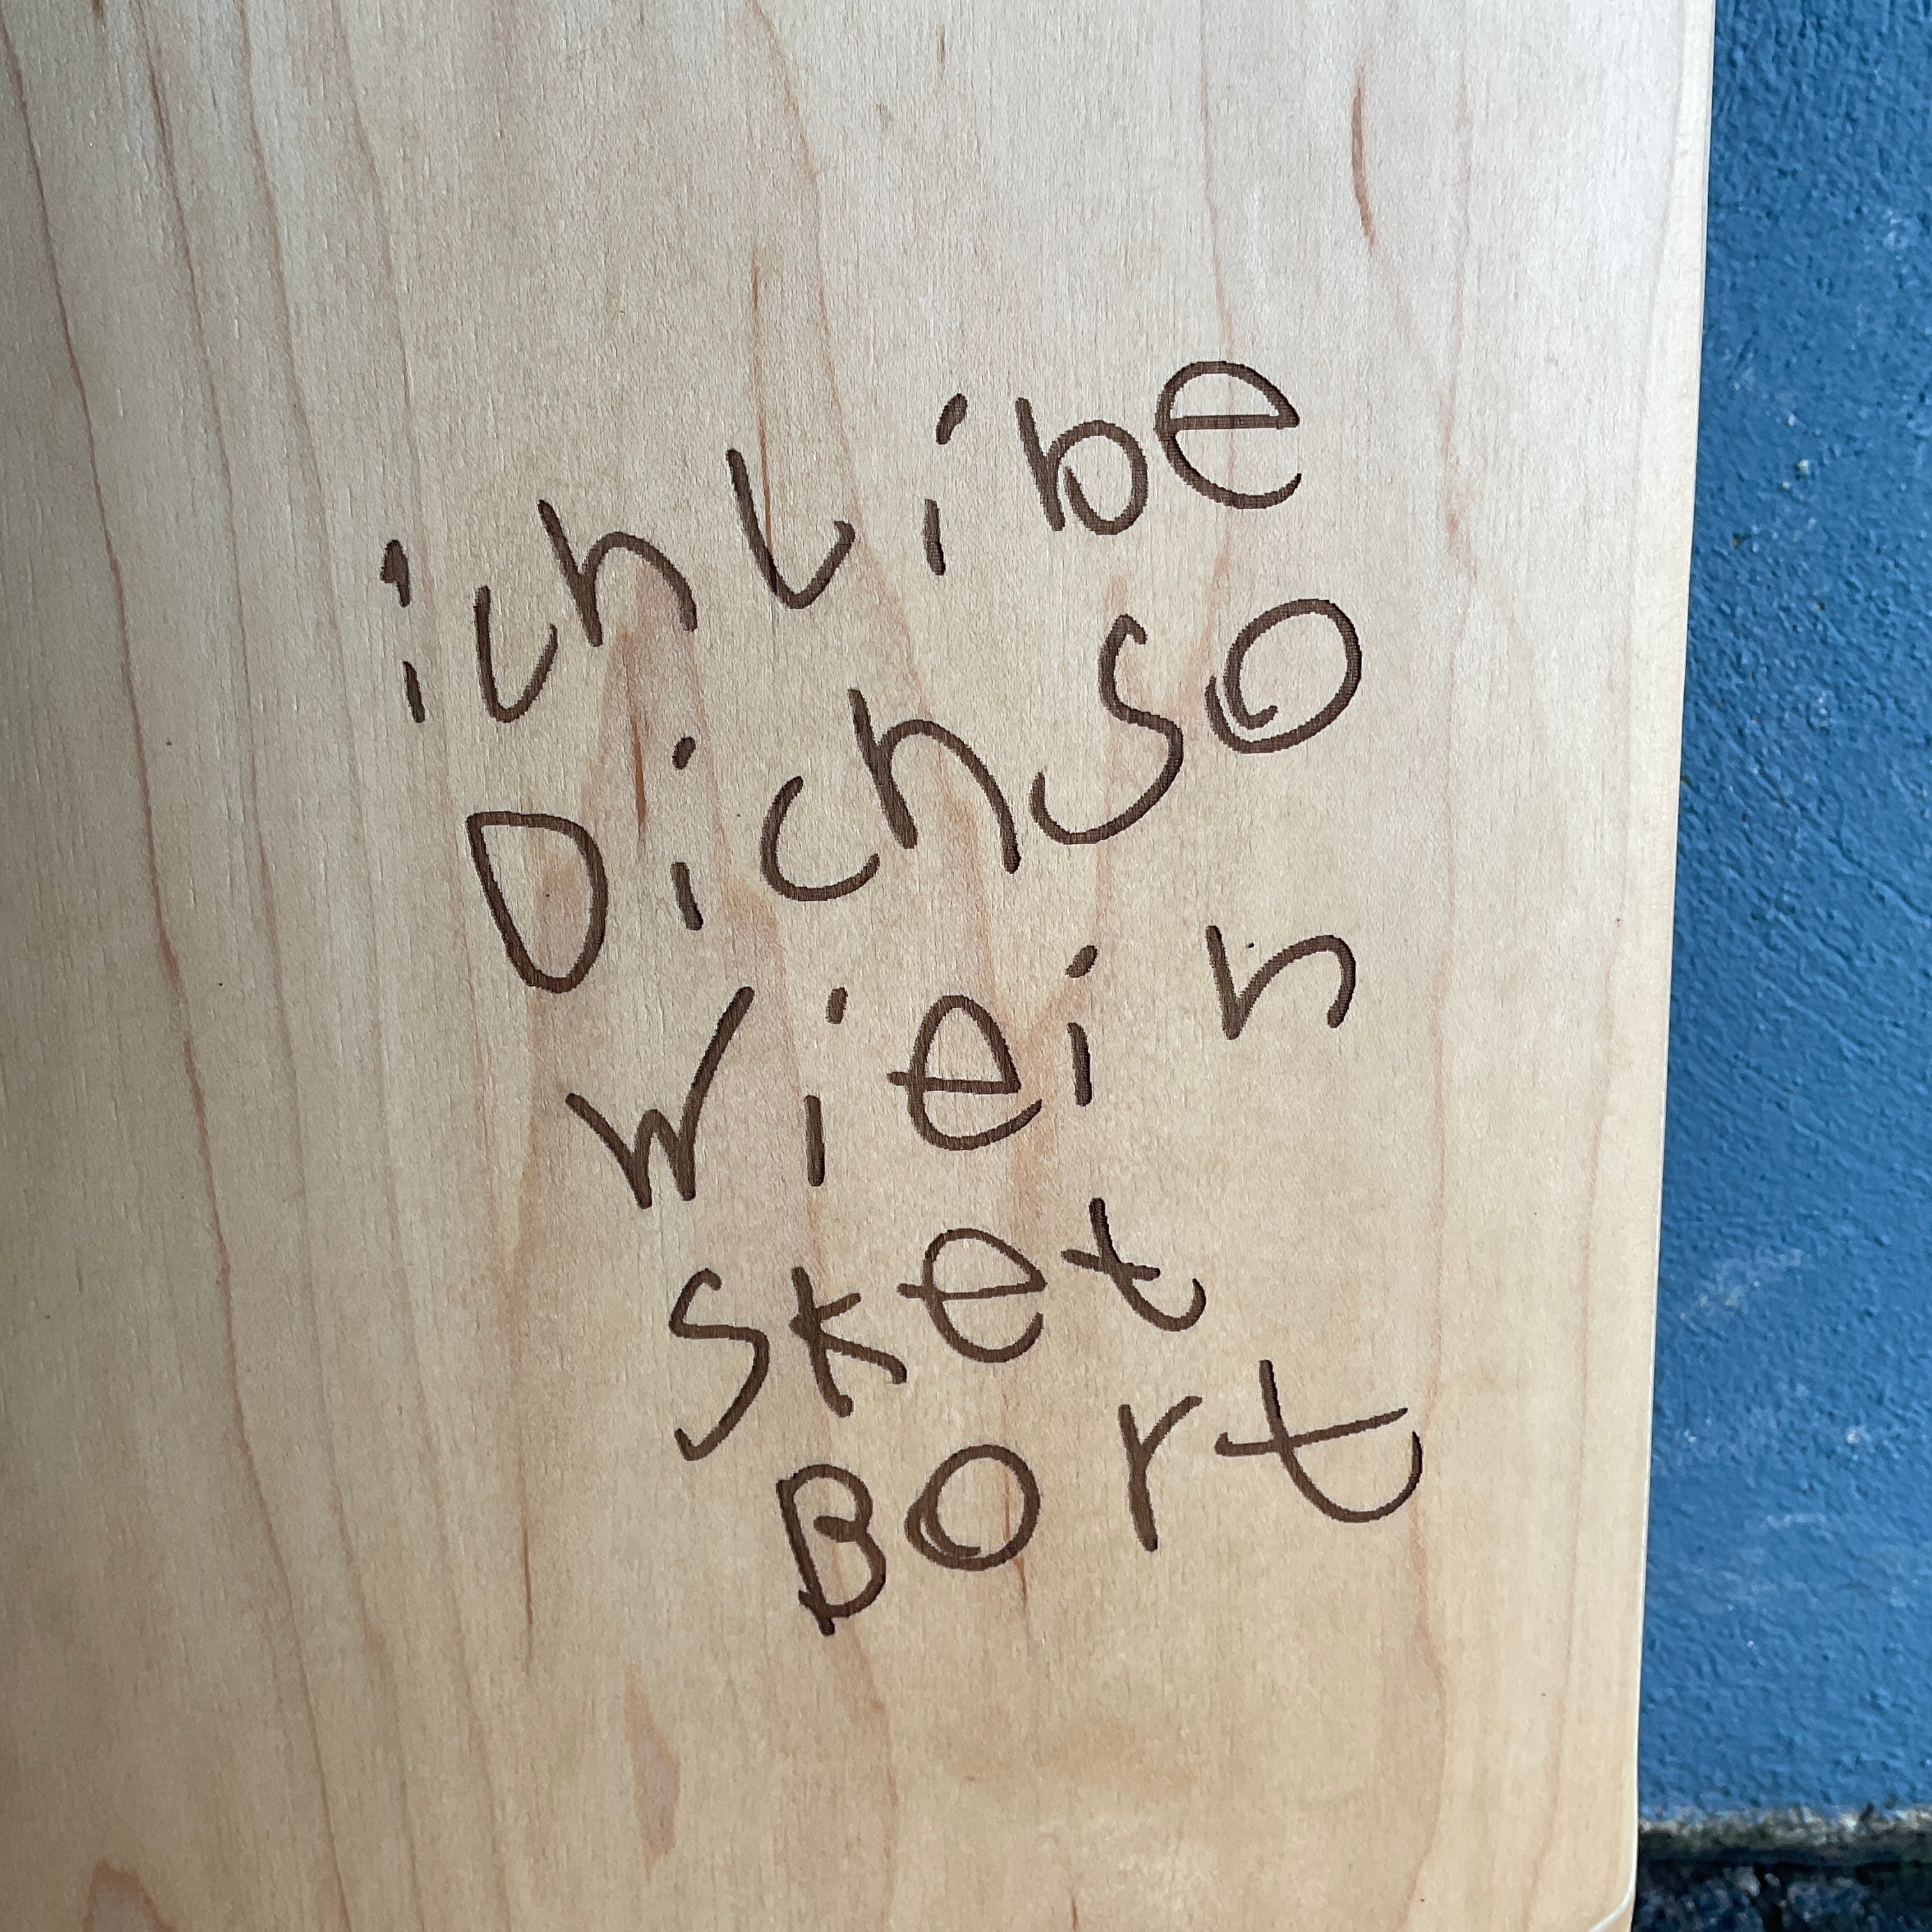 ich Libe
Dich so
wi ein
sket
Bort